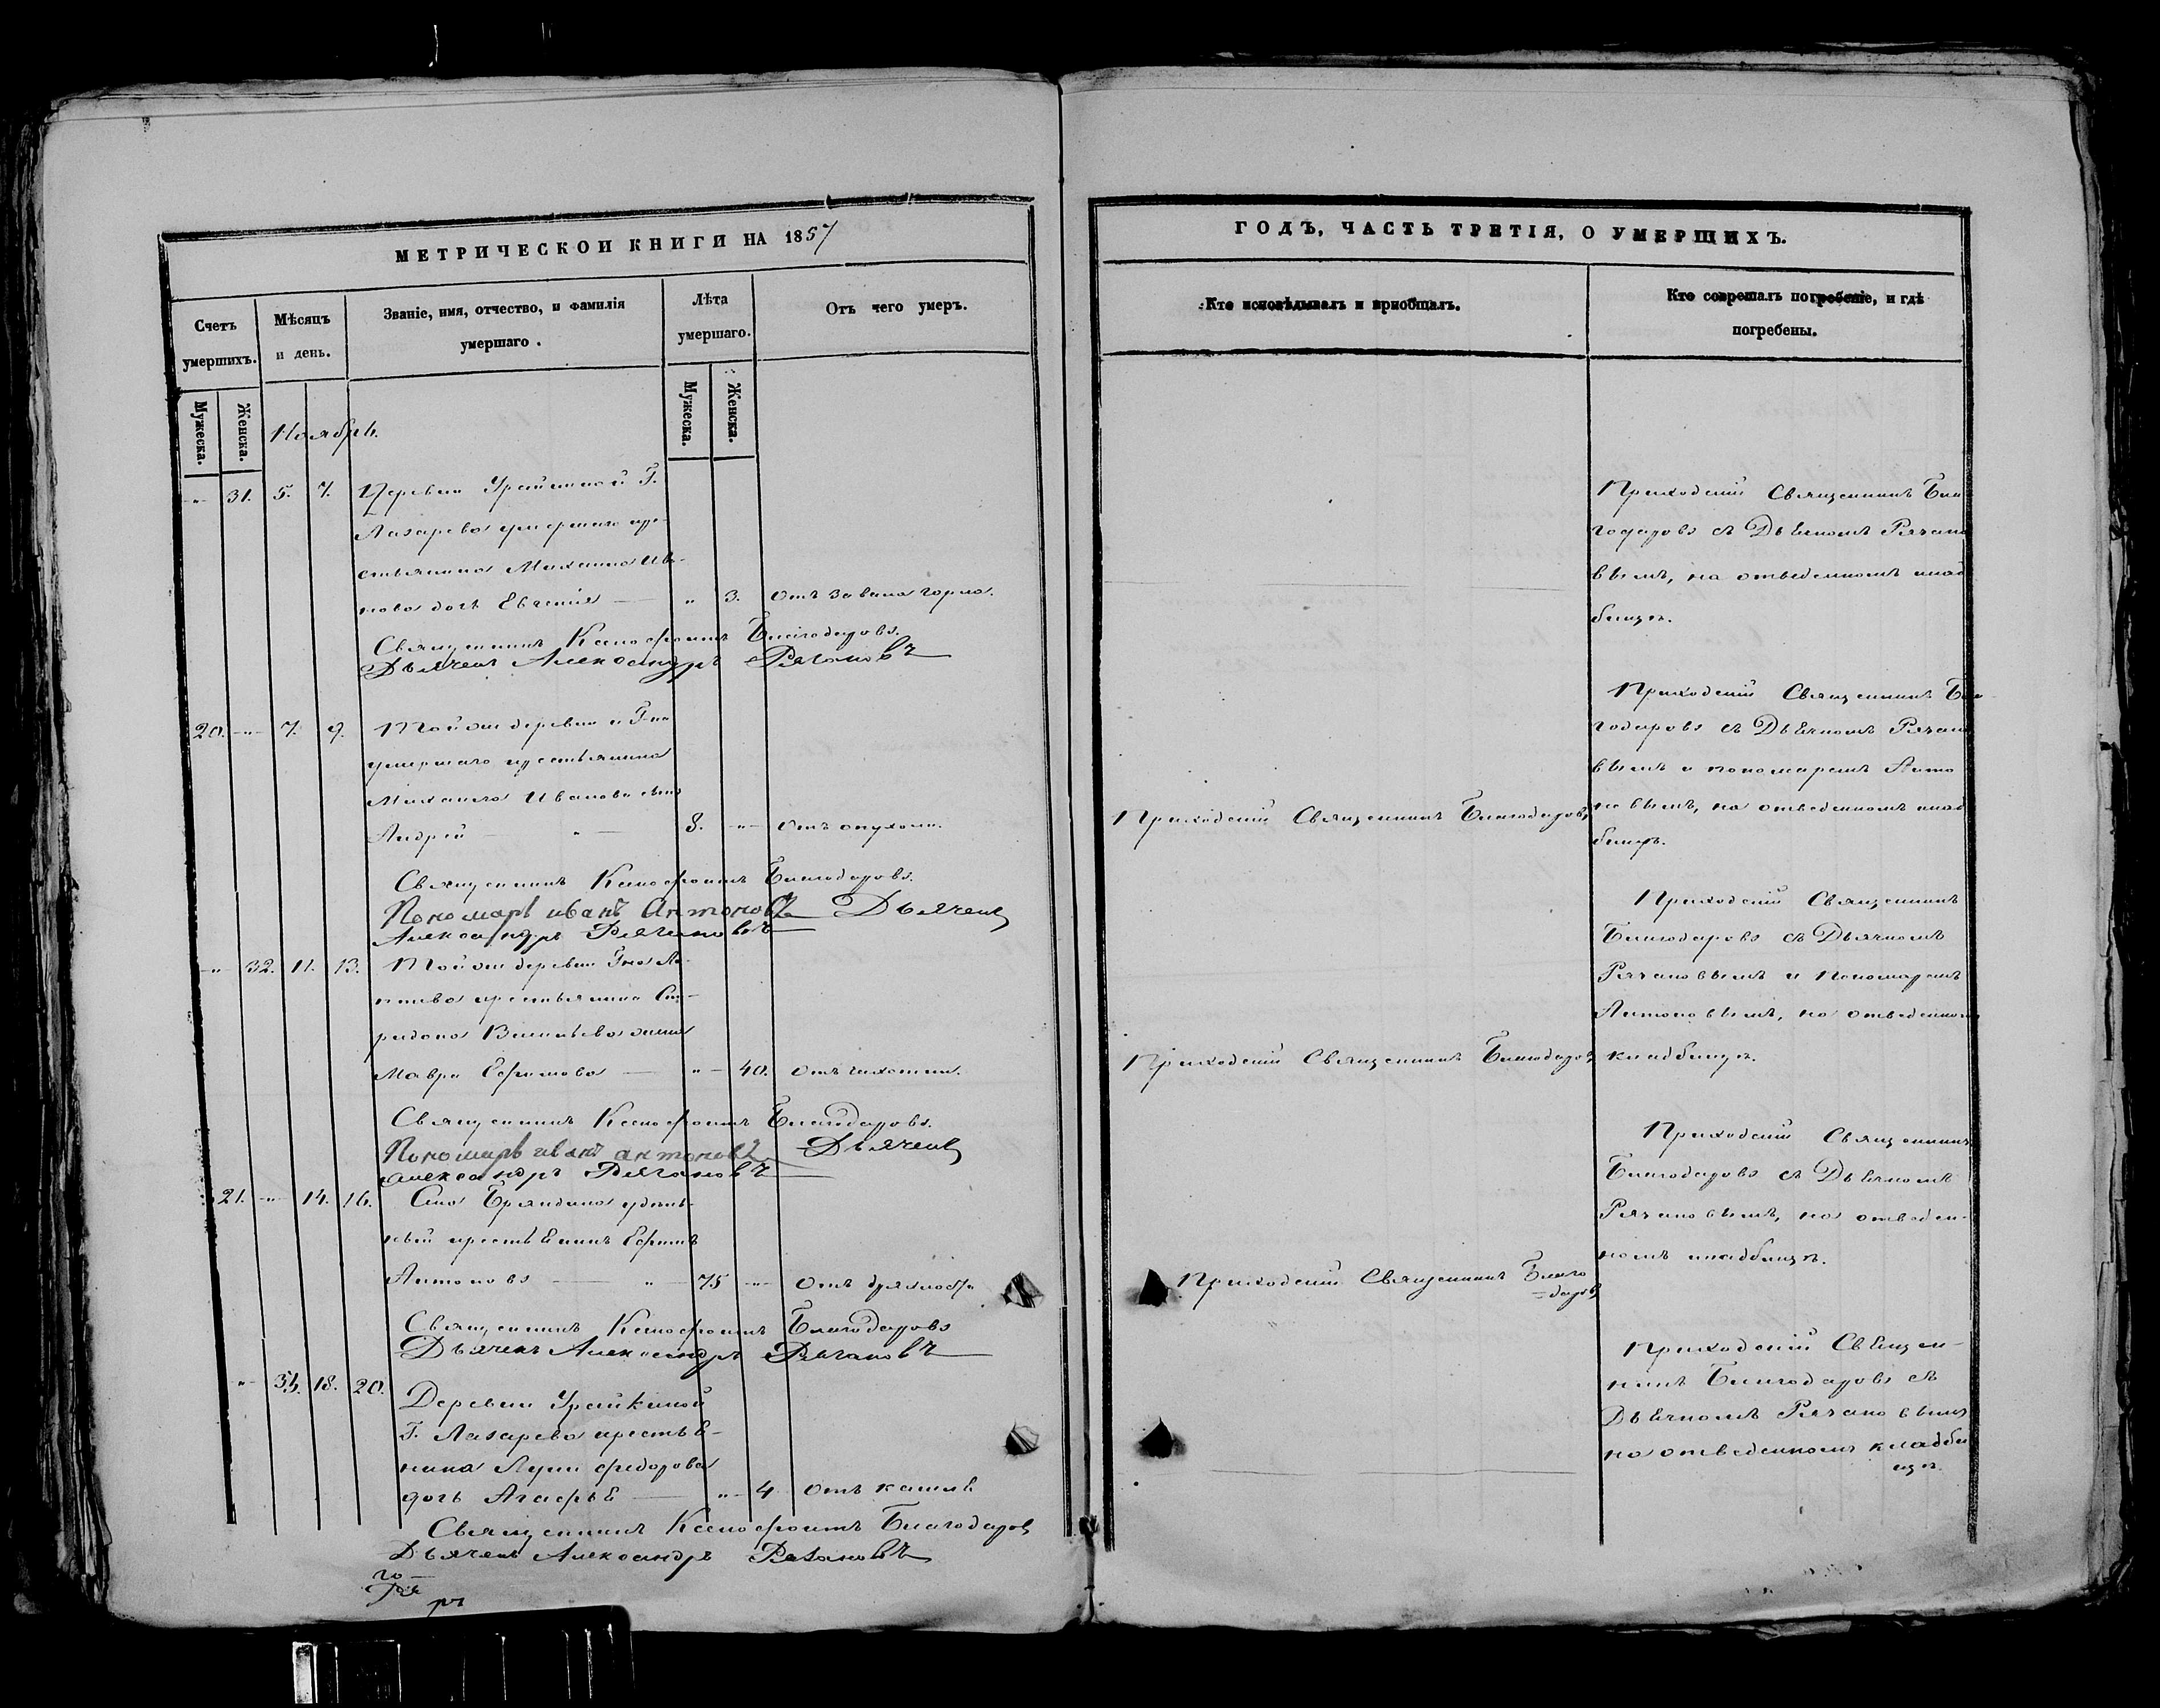 МЕТРИЧЕСКОЙ КНИГИ НА 1857
Счетъ умершихъ.
Мужеска.
Женска.
Мѣсяцъ и день.
Званіе, имя, отчество, и фамилія умершаго.
Лѣта умершаго.
Мужеска.
Женска.
Отъ чего умеръ.
Ноябрь.
-"- 31. 5. 7. Деревни Урайкиной Г.
Лазарева умершаго кре-
стьянина Михаила Ива-
нова дочь Евгенія — " 3. Отъ завала горла.
Священникъ Ксенофонтъ Благодаровъ.
Дьячекъ Александръ Рязановъ
20. -"- 7. 9. Той же деревни и Г-на
умершаго крестьянина
Михаила Иванова сынъ
Андрей — " — 8. -"- Отъ опухоли.
Священникъ Ксенофонтъ Благодаровъ.
Пономарь иванъ Антоновъ Дьячекъ
Александръ Рязановъ
-"- 32. 11. 13. Той же деревни Гна Ла-
крестьянина Спи-
ридона Васильева жена
Мавра Ефимова — -"- 40. Отъ чахотки.
Священникъ Ксенофонтъ Благодаровъ.
Пономарь иванъ антоновъ Дьячекъ
александръ Рязановъ
21. -"- 14. 16. Села Бряндина удѣль-
ный крестьянинъ Ефимъ
Антоновъ — " — 75 -"- Отъ дряхлости
Священникъ Ксенофонтъ Благодаровъ
Дьячекъ Александръ Рязановъ
-"- 33. 18. 20. Деревни Урайкиной
Г. Лазарева крестья-
нина Луки Федорова
дочь Агафья — -"- 4 Отъ кашля
Священникъ Ксенофонтъ Благодаровъ
Дьячекъ Александръ Рязановъ
ГОДЪ, ЧАСТЬ ТРЕТІЯ, О УМЕРШИХЪ.
Кто исповѣдывалъ и пріобщалъ.
Кто совершалъ погребеніе, и гдѣ погребены.
Приходскій Священникъ Бла-
годаровъ съ Дьячкомъ Рязано
вымъ, на отведенномъ клад
бищѣ.
Приходскій Священникъ Благодаровъ
Приходскій Священникъ Бла
годаровъ съ Дьячкомъ Рязано
вымъ и пономаремъ Анто
новымъ, на отведенномъ клад
бищѣ.
Приходскій Священникъ Благодаровъ
Приходскій Священникъ
Благодаровъ съ Дьячкомъ
Рязановымъ и Пономаремъ
Антоновымъ, на отведенномъ
кладбищѣ.
Приходскій Священникъ Благо
=даровъ
Приходскій Священникъ
Благодаровъ съ Дьячкомъ
Рязановымъ, на отведен-
номъ кладбищѣ.
Приходскій Священ-
никъ Благодаровъ съ
Дьячкомъ Рязановымъ
на отведенномъ кладби
щѣ.